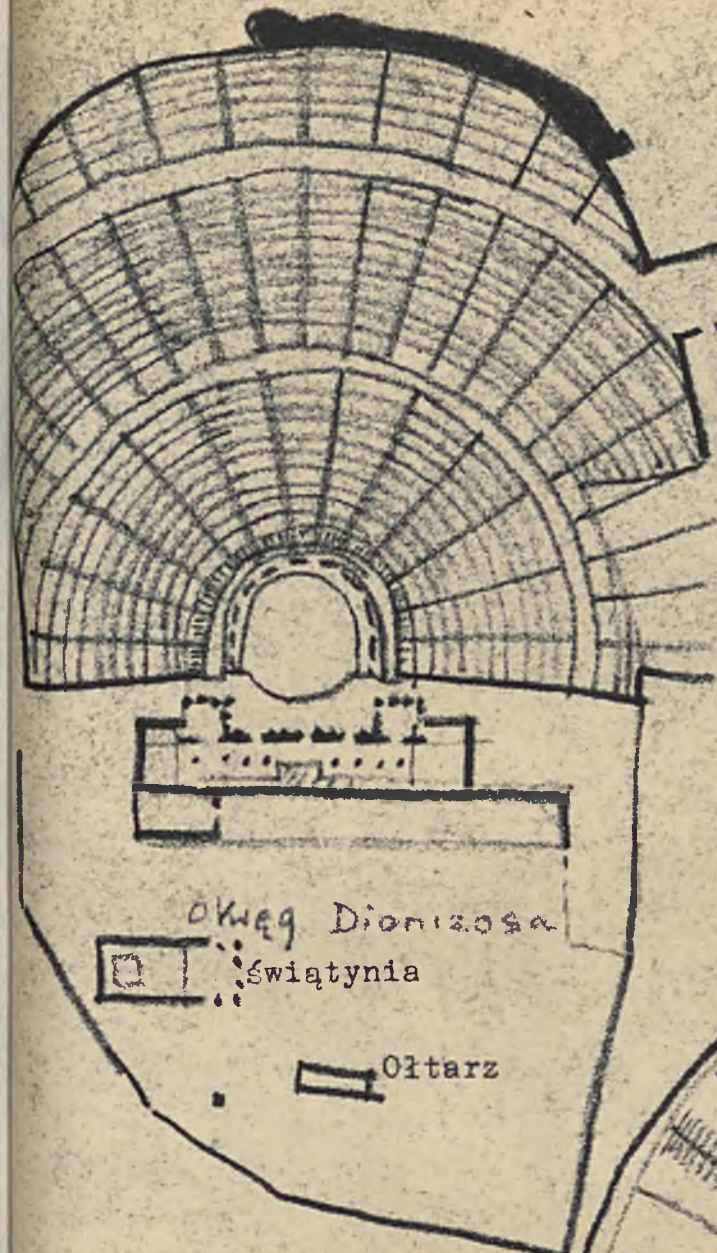 Okręg Dionizosa
świątynia
Ołtarz